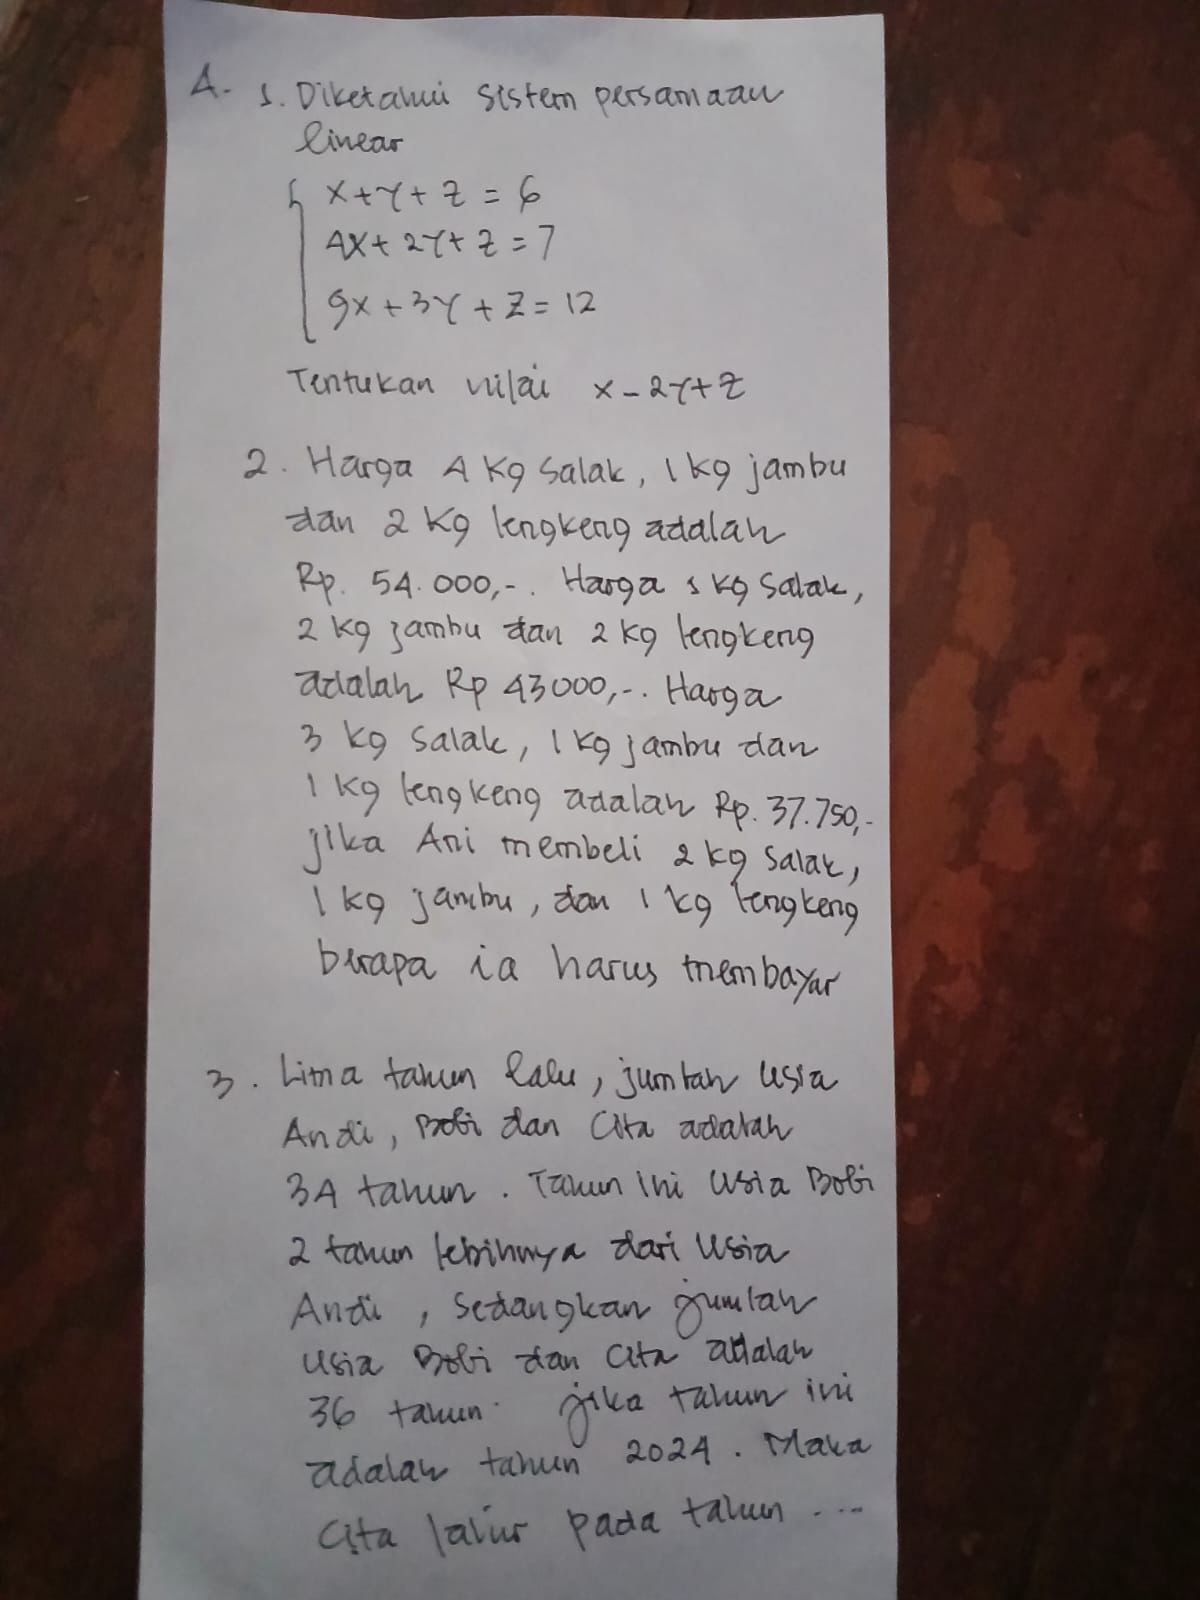 A. 1. Diketahui sistem persamaan
linear
x+y+z = 6
4x+2y+z=7
9x+3y+z=12
Tentukan nilai x-2y+z
2. Harga 4 kg salak, 1 kg jambu
dan 2 kg lengkeng adalah
Rp. 54.000,-. Harga 1 kg salak,
2 kg jambu dan 2 kg lengkeng
adalah Rp 43000,-. Harga
3 kg salak, 1 kg jambu dan
1 kg lengkeng adalah Rp. 37.750,-
jika Ani membeli 2 kg salak,
1 kg jambu, dan 1 kg lengkeng
berapa ia harus membayar
3. Lima tahun lalu, jumlah usia
Andi, Bobi dan Cita adalah
34 tahun. Tahun ini usia Bobi
2 tahun lebihnya dari usia
Andi, sedangkan jumlah
usia Bobi dan Cita adalah
36 tahun. jika tahun ini
adalah tahun 2024. Maka
Cita lahir pada tahun ....